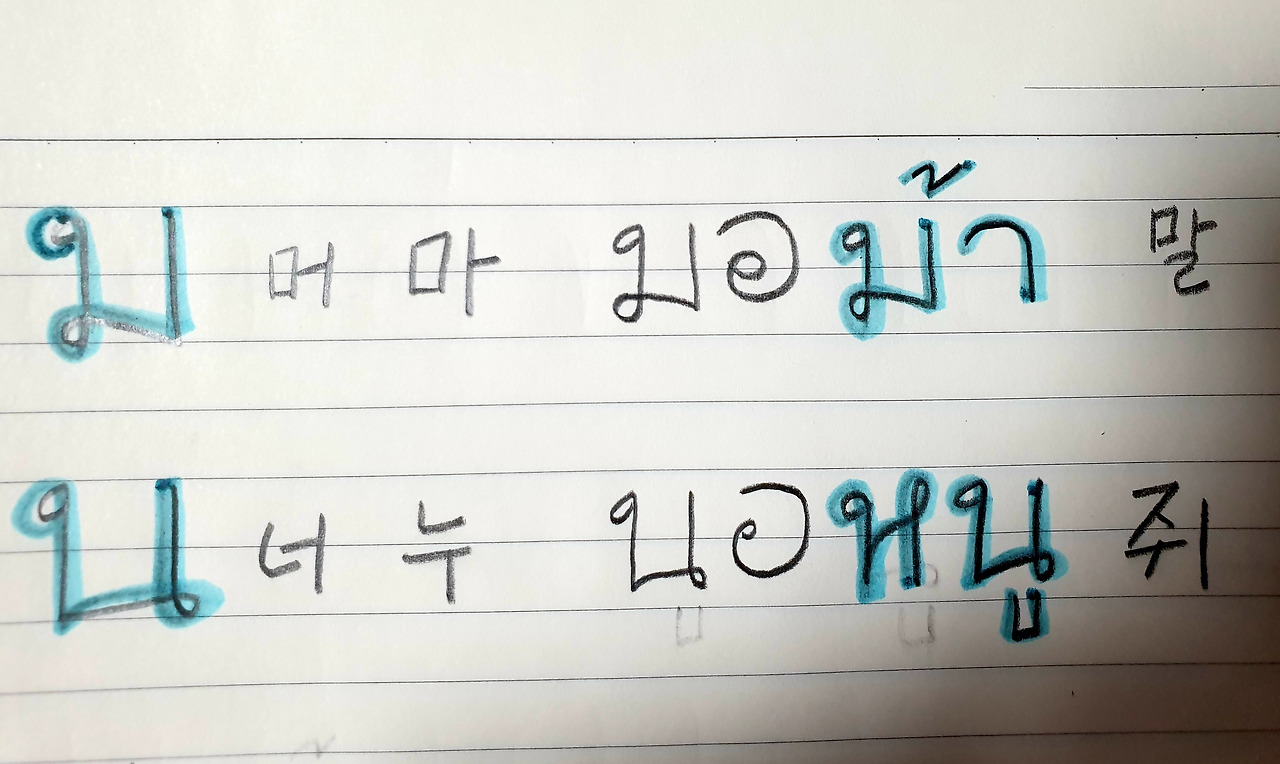 ม 머 마 มอ ม้า 말
น 너 누 นอ หนู 쥐